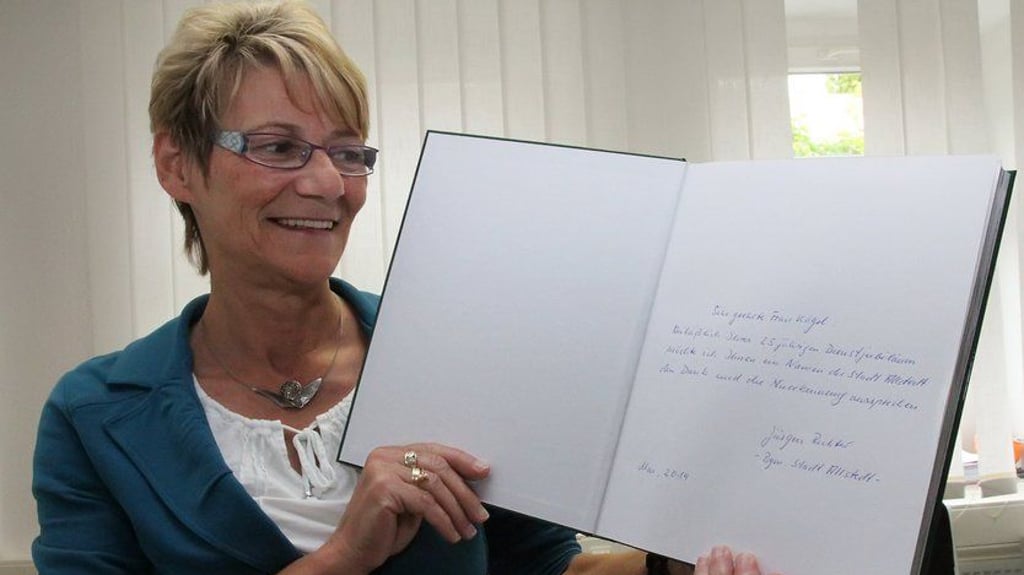 Sehr geehrte Frau Vogel
Anläßlich Ihres 25jährigen Dienstjubiläum
möchte ich Ihnen im Namen der Stadt Allstedt
den Dank und die Anerkennung aussprechen
Jürgen Richter
- Bgm. Stadt Allstedt -
Mai, 2014